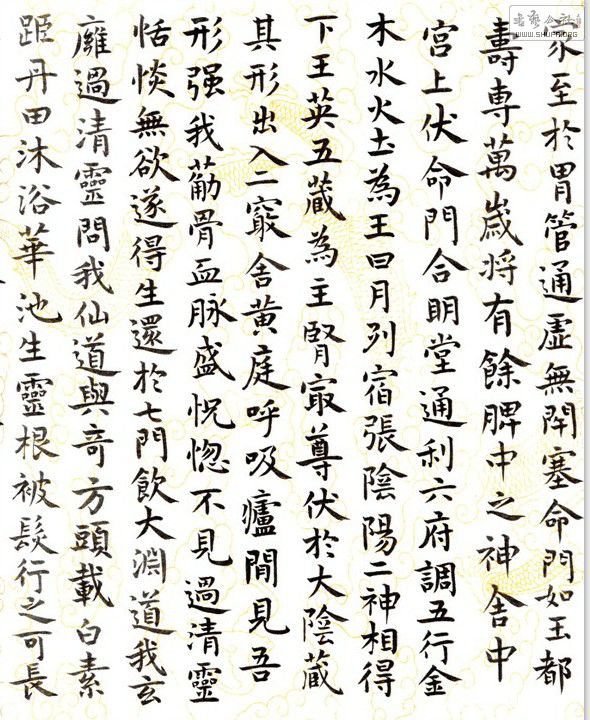 书艺公社
WWW.SHUFA.ORG
家至於胃管通虛無閉塞命門如玉都
壽専萬歲将有餘脾中之神舍中
宮上伏命門合明堂通利六府調五行金
木水火土為王日月列宿張陰陽二神相得
下王英五藏為主腎㝡尊伏於大陰藏
其形出入二竅舍黄庭呼吸廬間見吾
形强我筋骨血脉盛怳惚不見過清靈
恬惔無欲遂得生還於七門飲大淵道我玄
廱過清靈問我仙道與奇方頭載白素
距丹田沐浴華池生靈根被髮行之可長